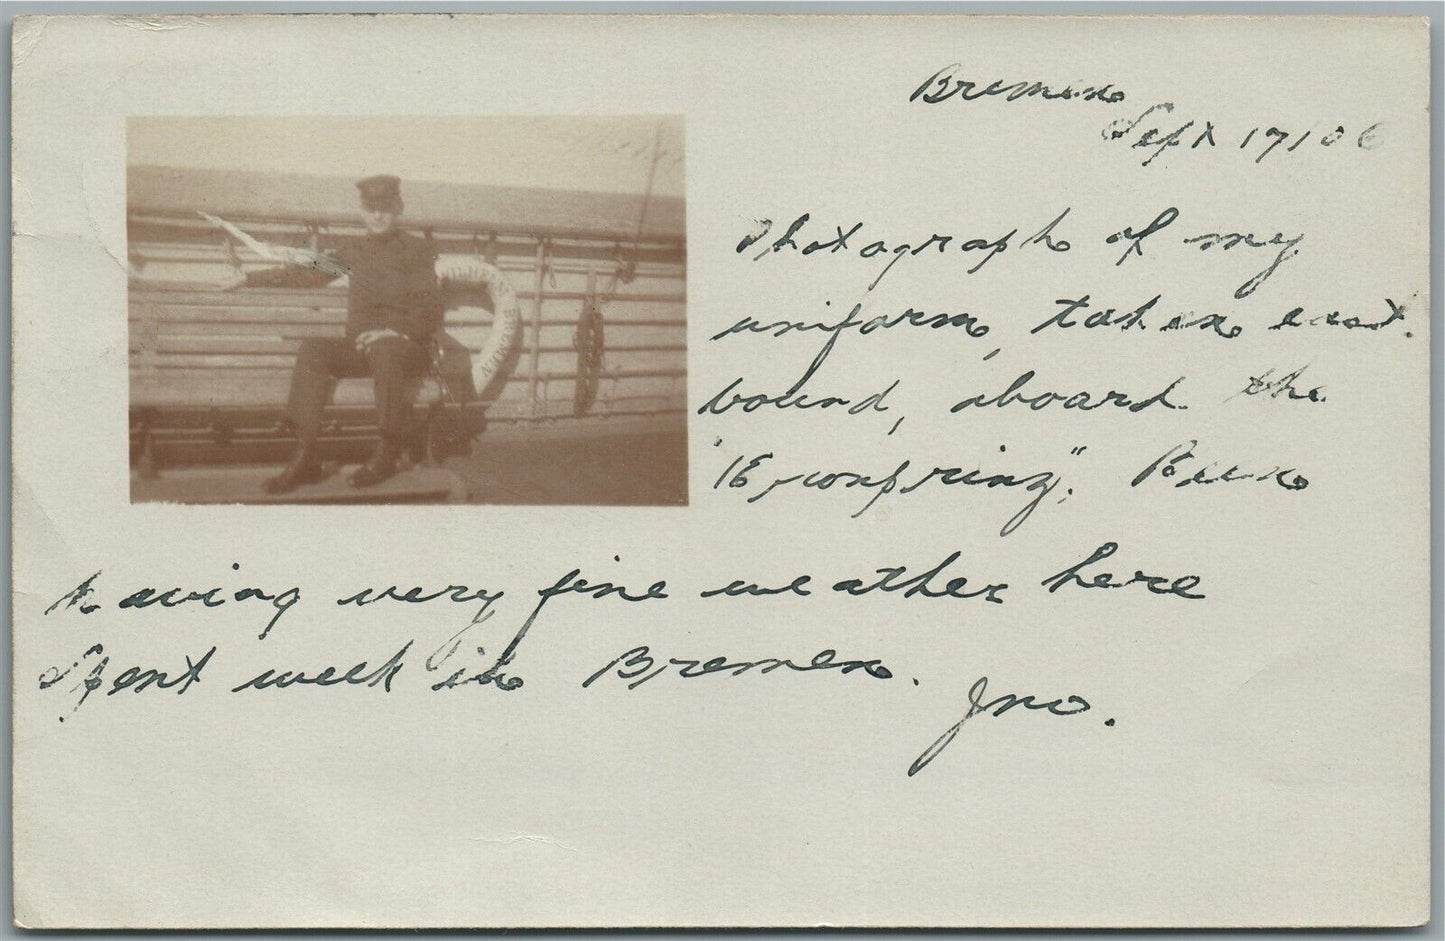 Bremen
Sept 17/06
Photograph of my
uniform, taken east
bound, aboard the
"Kronprinz". Been
having very fine weather here
Spent week in Bremen.
Jno.